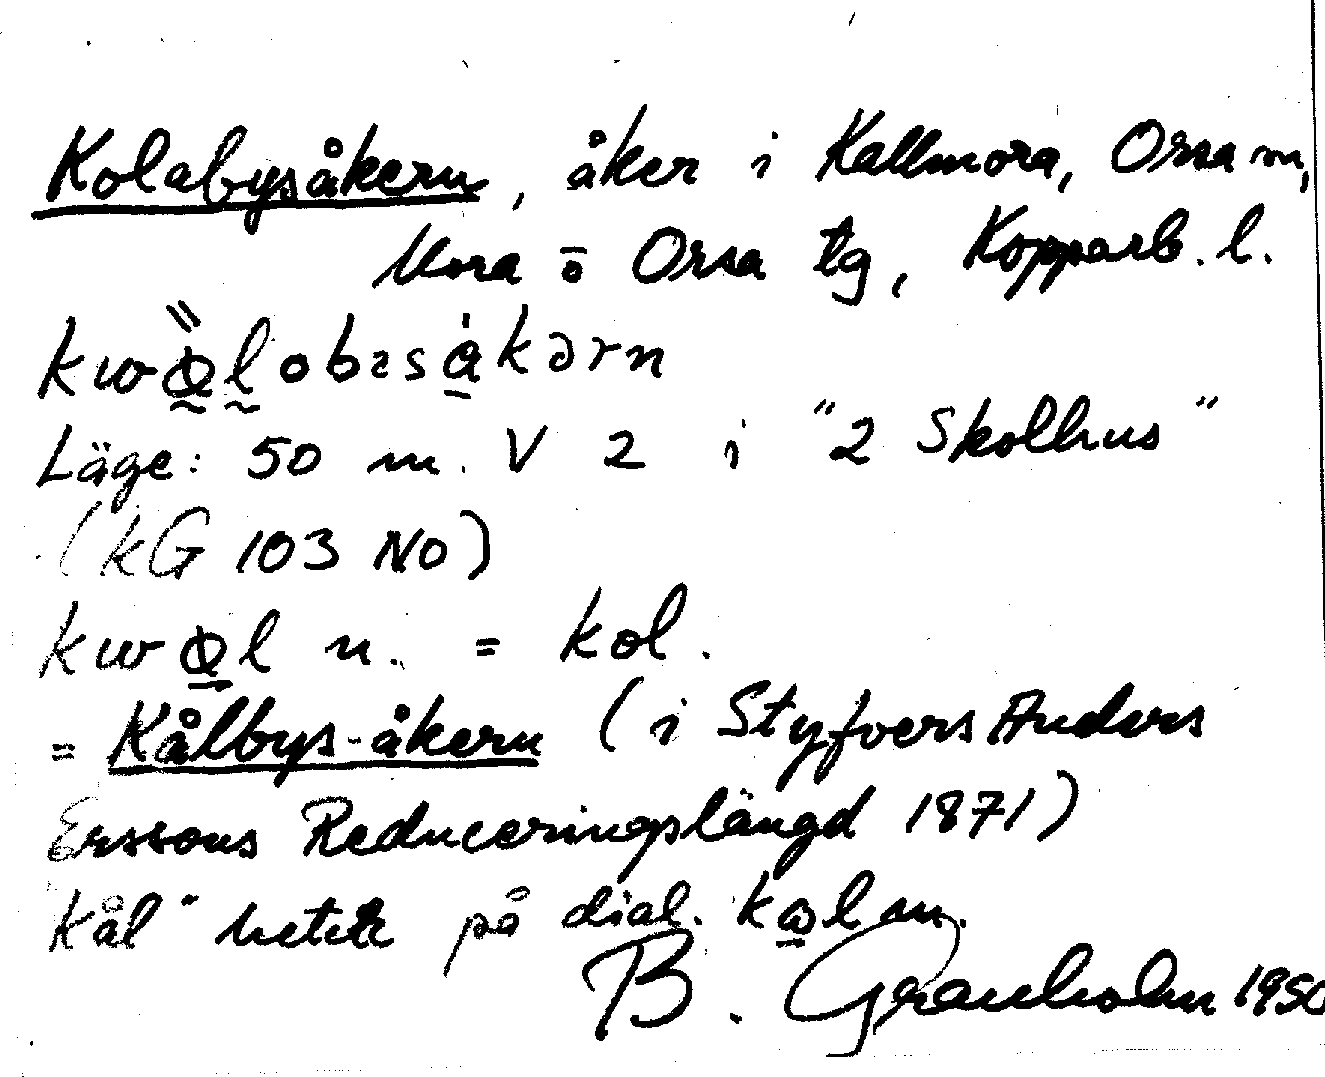 Kolabysåkern, åker i Kallmora, Orsa sn,
Mora o Orsa tg, Kopparb. l.
Läge: 50 m. V 2 i "2 Skolhus"
(kG 103 NO)
n. = kol.
= Kålbys-åkern (i Styfvers Anders
Erssons Reduceringslängd 1871)
"Kål" heter på dial. m.
B. Granholm 1950